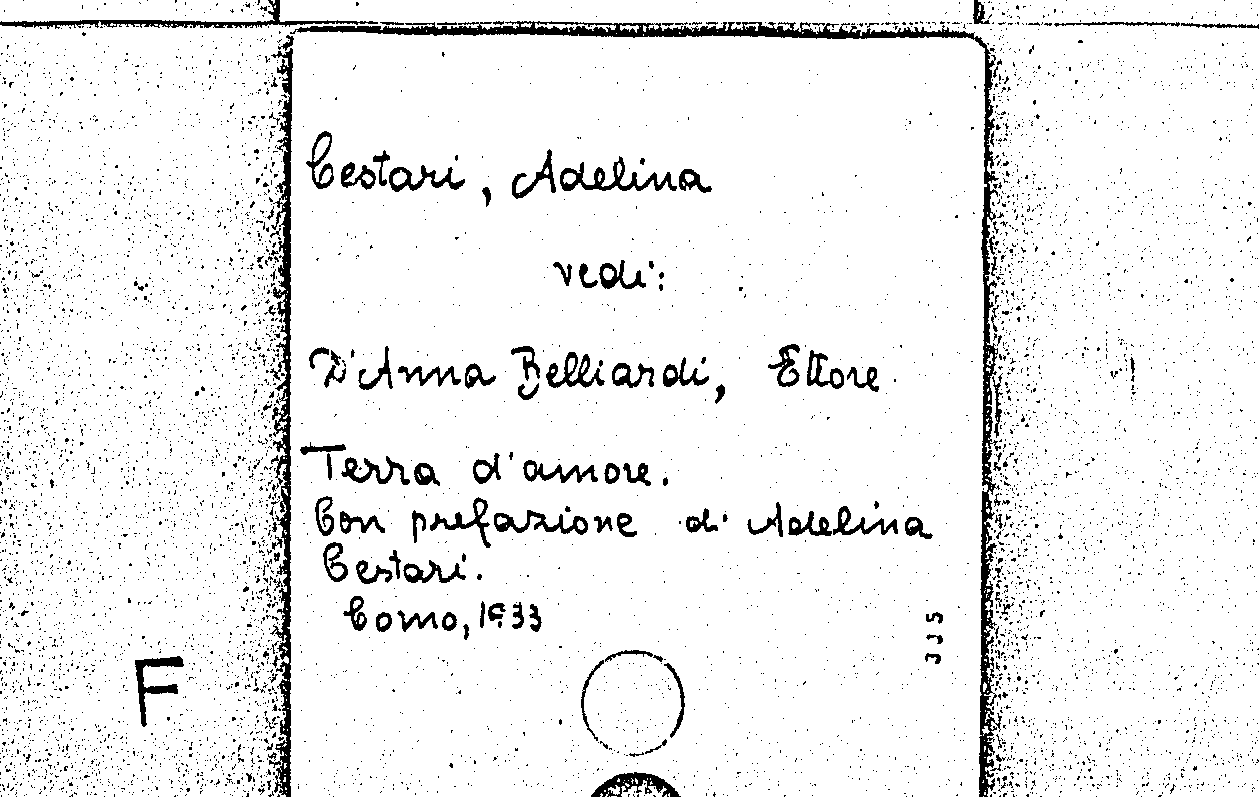 Cestari, Adelina
vedi:
D'Anna Belliardi, Ettore
Terra d'amore.
Con prefazione di Adelina
Cestari.
Como, 1933
335
F